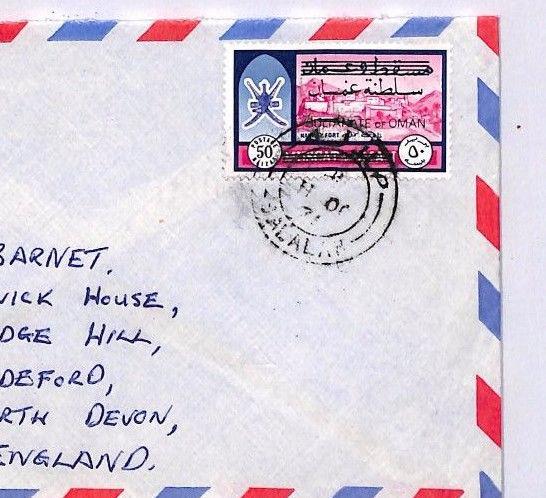 مسقط و عمان
سلطنة عمان
SULTANATE OF OMAN
FORT
50
POSTAGE
٥٠
SALALAH
BARNET.
WICK HOUSE,
DGE HILL,
DEFORD,
RTH DEVON,
ENGLAND.